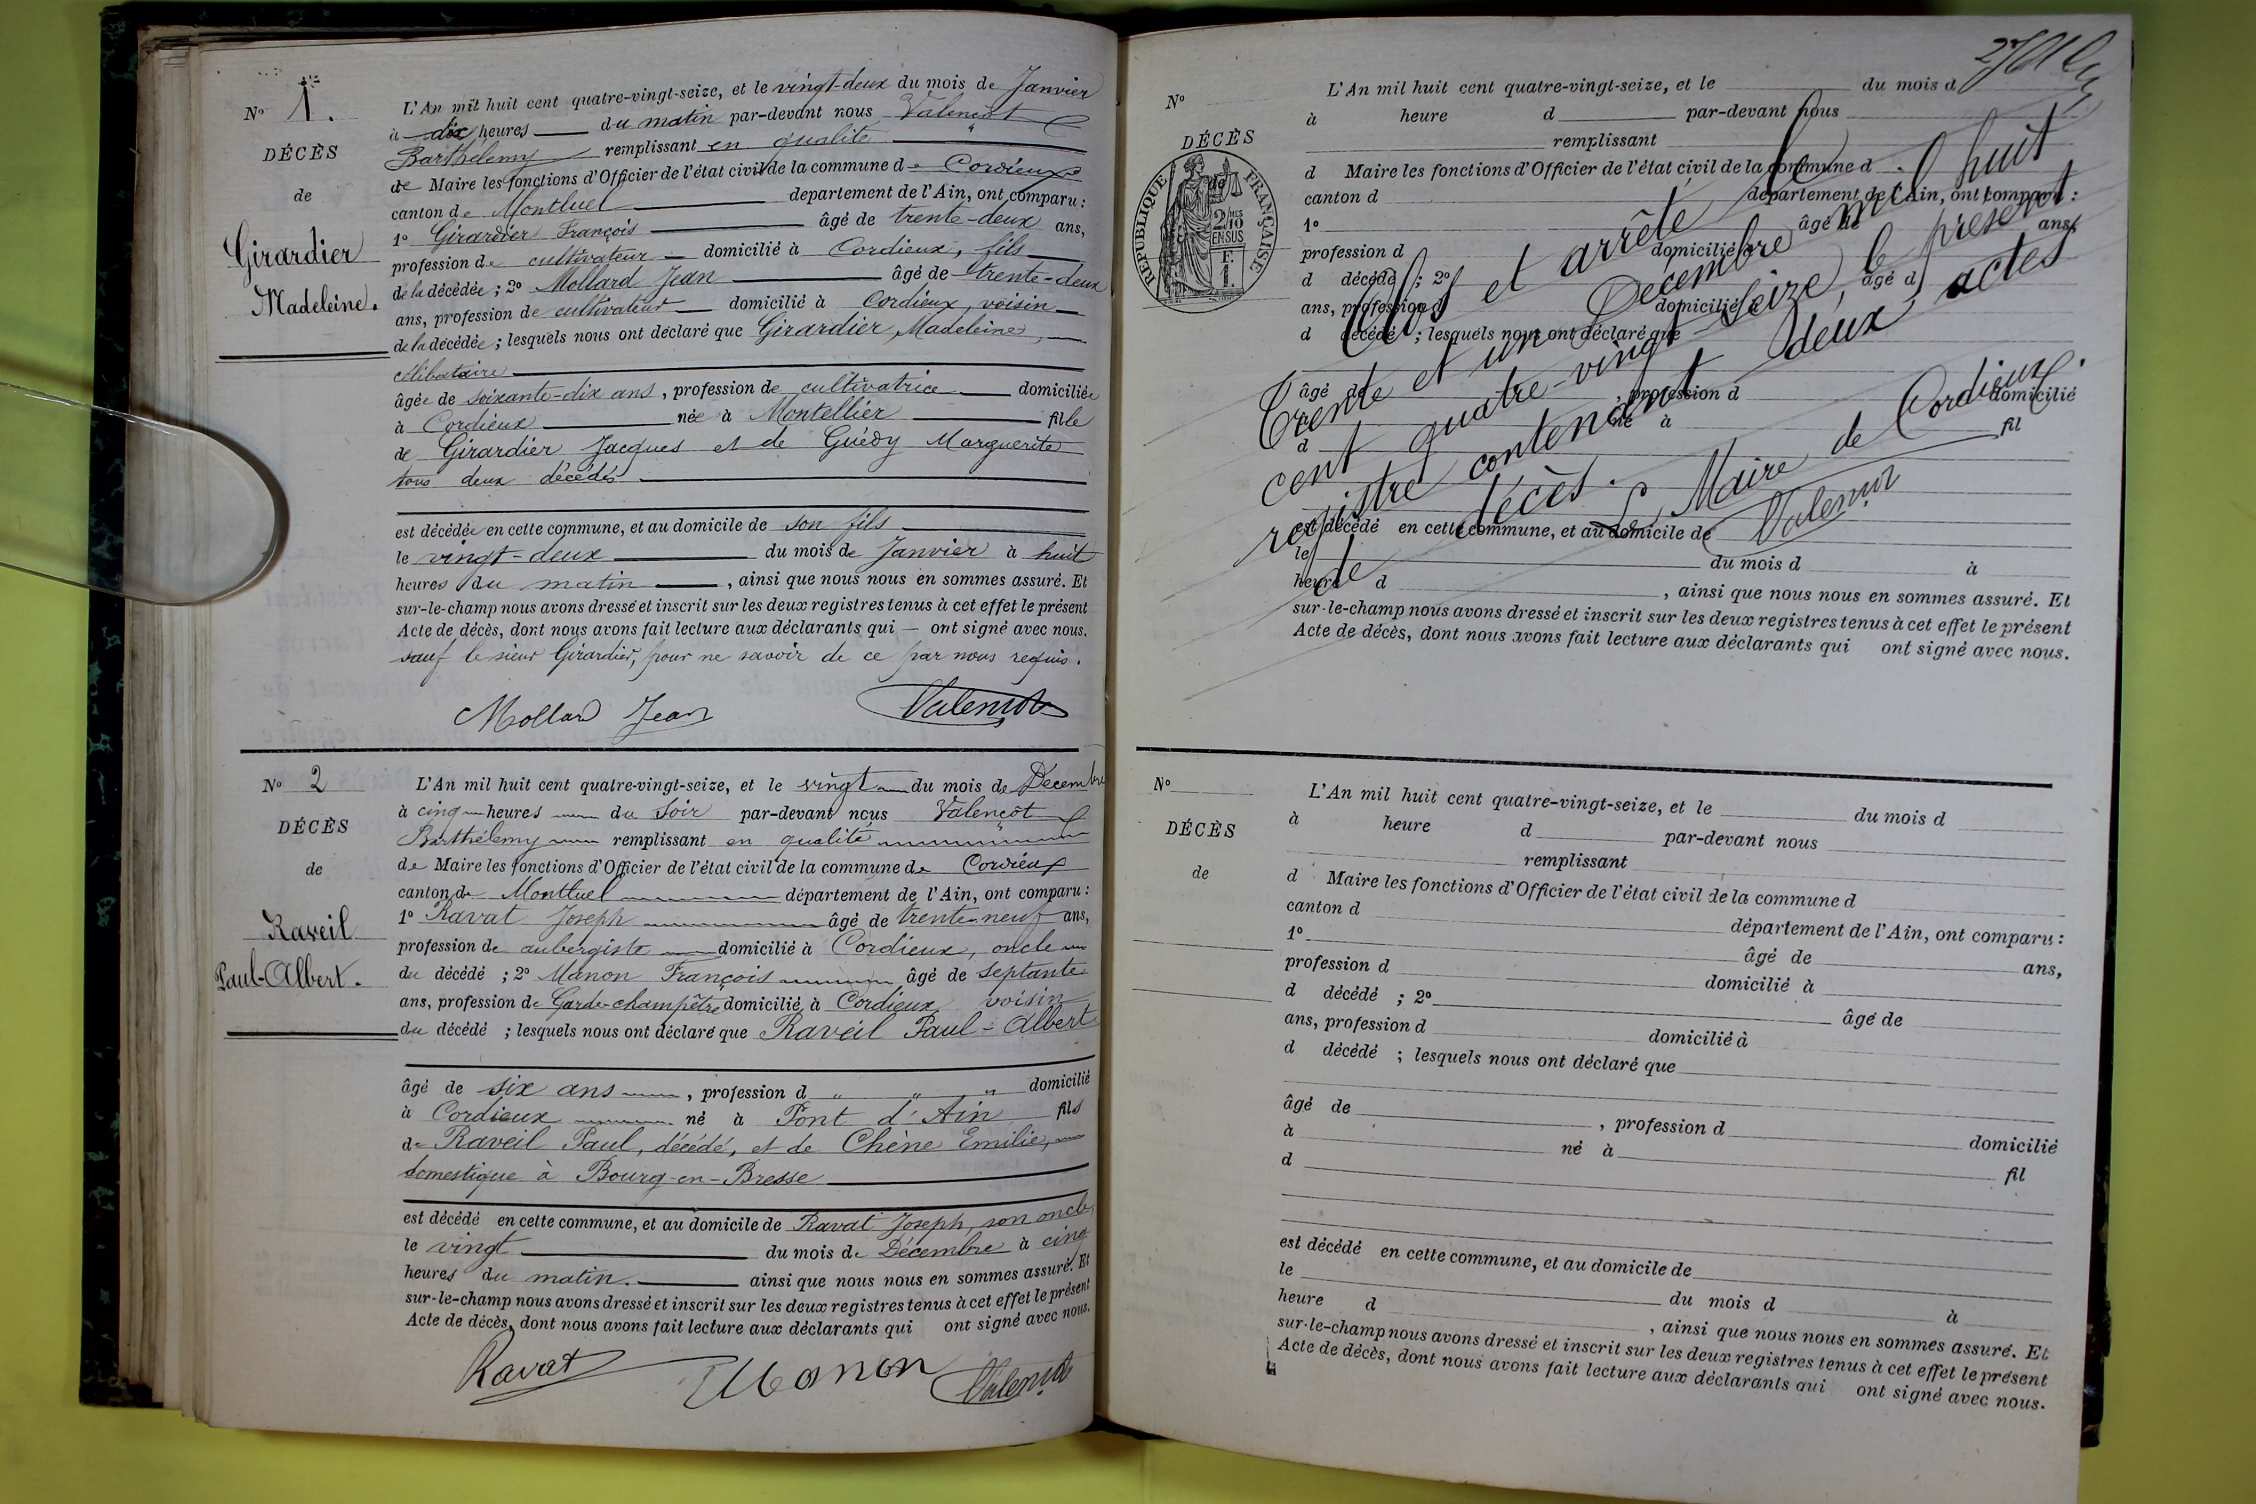 N° 1.
DÉCÈS
de
Girardier
Madeleine.
L'An mil huit cent quatre-vingt-seize, et le vingt-deux du mois de Janvier
à dix heures du matin par-devant nous Valençot
Barthélemy remplissant en qualité
de Maire les fonctions d'Officier de l'état civil de la commune de Cordieux
canton de Montluel département de l'Ain, ont comparu :
1° Girardier François âgé de trente-deux ans,
profession de cultivateur domicilié à Cordieux, fils
de la décédée ; 2° Mollard Jean âgé de trente-deux
ans, profession de cultivateur domicilié à Cordieux, voisin
de la décédée ; lesquels nous ont déclaré que Girardier Madeleine,
célibataire
âgée de soixante-dix ans, profession de cultivatrice domiciliée
à Cordieux née à Montellier fille
de Girardier Jacques et de Guédy Marguerite
tous deux décédés
est décédée en cette commune, et au domicile de son fils
le vingt-deux du mois de Janvier à huit
heures du matin, ainsi que nous nous en sommes assuré. Et
sur-le-champ nous avons dressé et inscrit sur les deux registres tenus à cet effet le présent
Acte de décès, dont nous avons fait lecture aux déclarants qui — ont signé avec nous.
sauf le sieur Girardier, pour ne savoir de ce par nous requis.
Mollard Jean Valençot
N° 2
DÉCÈS
de
Raveil
Paul-Albert.
L'An mil huit cent quatre-vingt-seize, et le vingt du mois de Décembre
à cinq heures du soir par-devant nous Valençot
Barthélemy remplissant en qualité
de Maire les fonctions d'Officier de l'état civil de la commune de Cordieux
canton de Montluel département de l'Ain, ont comparu :
1° Ravat Joseph âgé de trente-neuf ans,
profession de aubergiste domicilié à Cordieux, oncle
du décédé ; 2° Manon François âgé de septante
ans, profession de Garde-champêtre domicilié à Cordieux voisin
du décédé ; lesquels nous ont déclaré que Raveil Paul-Albert
âgé de six ans, profession d " " " domicilié
à Cordieux né à Pont d'Ain fils
de Raveil Paul, décédé, et de Chêne Emilie,
domestique à Bourg-en-Bresse
est décédé en cette commune, et au domicile de Ravat Joseph, son oncle,
le vingt du mois de Décembre à cinq
heures du matin. ainsi que nous nous en sommes assuré. Et
sur-le-champ nous avons dressé et inscrit sur les deux registres tenus à cet effet le présent
Acte de décès, dont nous avons fait lecture aux déclarants qui ont signé avec nous.
Ravat Manon Valençot
N°
DÉCÈS
de
RÉPUBLIQUE FRANÇAISE
2/10 EN SUS
F.
1.
L'An mil huit cent quatre-vingt-seize, et le du mois d
à heure d par-devant nous
remplissant
d Maire les fonctions d'Officier de l'état civil de la commune d
canton d département de l'Ain, ont comparu :
1° âgé de ans,
profession d domicilié à
d décédé ; 2° âgé d
ans, profession d domicilié à
d décédé ; lesquels nous ont déclaré que
âgé de , profession d domicilié
à né à
d fil
est décédé en cette commune, et au domicile de
le du mois d à
heure d , ainsi que nous nous en sommes assuré. Et
sur-le-champ nous avons dressé et inscrit sur les deux registres tenus à cet effet le présent
Acte de décès, dont nous avons fait lecture aux déclarants qui ont signé avec nous.
Clos et arrêté le
trente et un Décembre mil huit
cent quatre-vingt-seize, le présent
registre contenant deux actes
de décès.
Le Maire de Cordieux.
Valençot
N°
DÉCÈS
de
L'An mil huit cent quatre-vingt-seize, et le du mois d
à heure d par-devant nous
remplissant
d Maire les fonctions d'Officier de l'état civil de la commune d
canton d département de l'Ain, ont comparu :
1° âgé de ans,
profession d domicilié à
d décédé ; 2° âgé de
ans, profession d domicilié à
d décédé ; lesquels nous ont déclaré que
âgé de , profession d domicilié
à né à
d fil
est décédé en cette commune, et au domicile de
le du mois d à
heure d , ainsi que nous nous en sommes assuré. Et
sur-le-champ nous avons dressé et inscrit sur les deux registres tenus à cet effet le présent
Acte de décès, dont nous avons fait lecture aux déclarants qui ont signé avec nous.